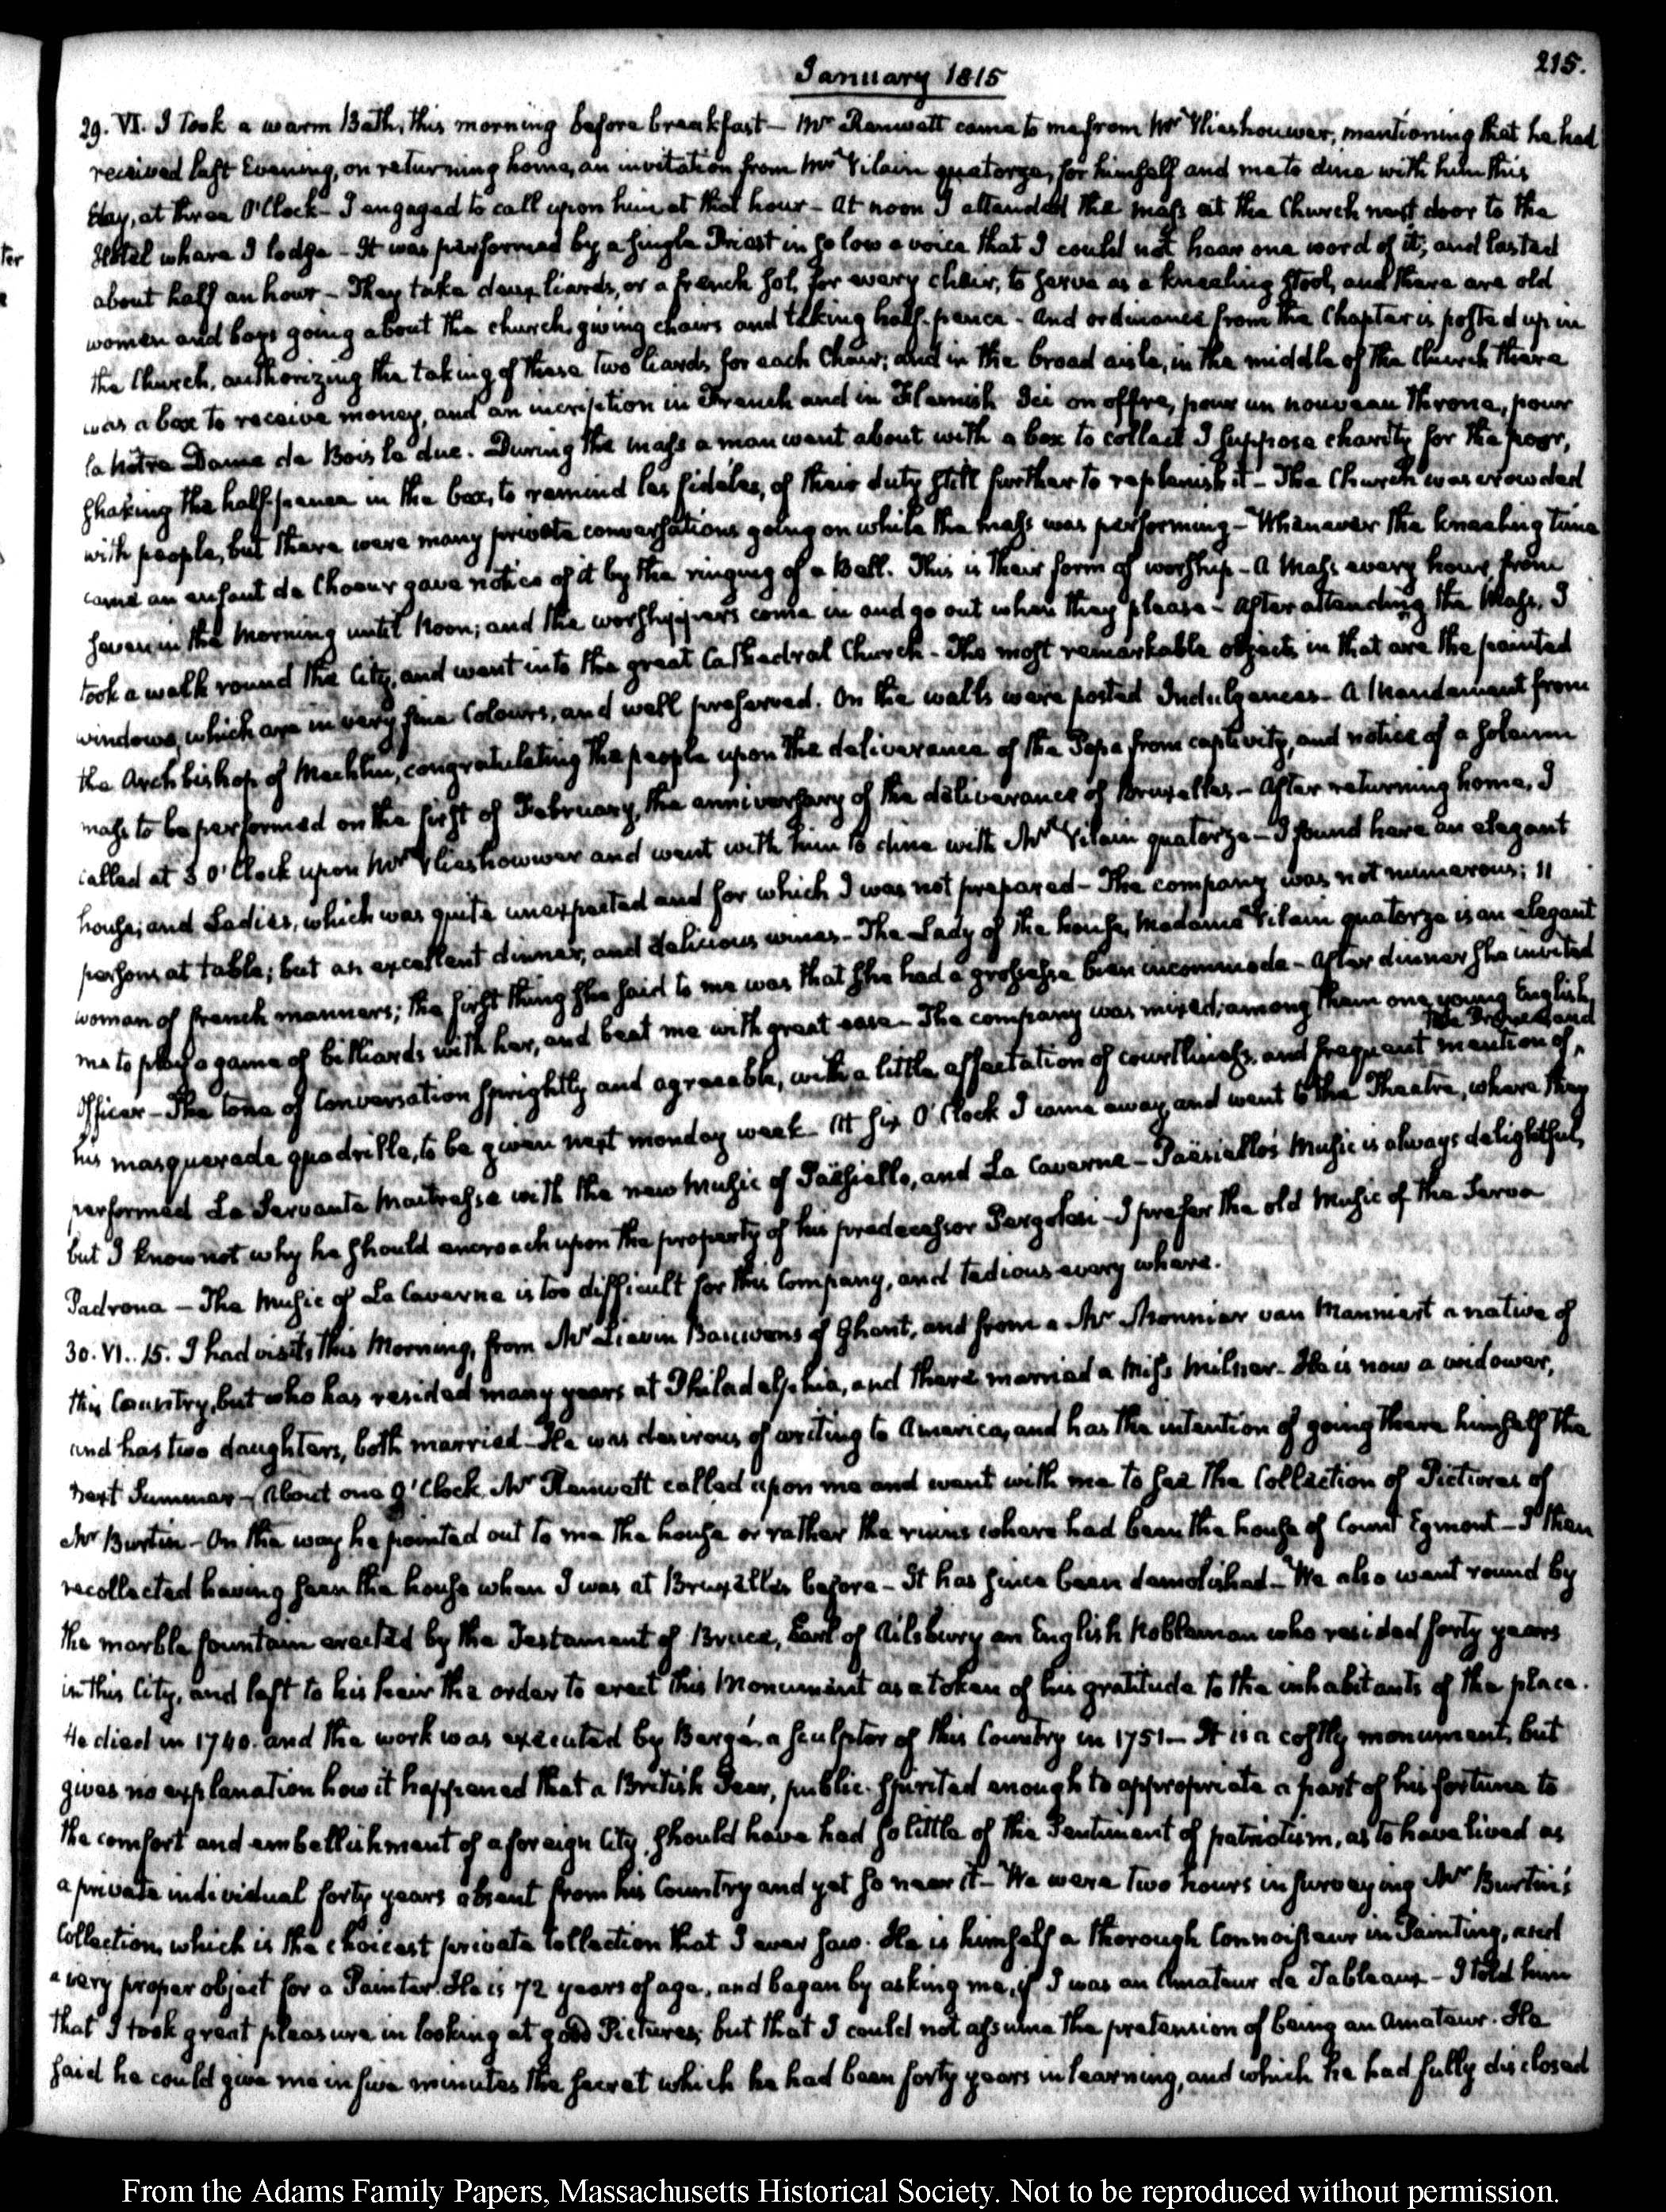 215.
January 1815
29. VI. I took a warm Bath, this morning before breakfast — Mr. Ranwett came to me from Mr. Vlieshouwer, mentioning that he had
received last Evening, on returning home, an invitation from Mr. Vilain quatorze, for himself and me to dine with him this
day, at three O'Clock — I engaged to call upon him at that hour — At noon I attended the mass at the Church next door to the
Hotel where I lodge — It was performed by a single Priest in so low a voice that I could not hear one word of it; and lasted
about half an hour — They take deux liards, or a french sol, for every chair, to serve as a kneeling stool, and there are old
women and boys going about the church, giving chairs and taking half-pence — And ordinance from the Chapter is posted up in
the Church, authorizing the taking of these two liards for each Chair; and in the broad aisle, in the middle of the Church there
was a box to receive money, and an incription in French and in Flemish Ici on offre, pour un nouveau Throne, pour
la Nôtre Dame de Bois le duc. During the mass a man went about with a box to collect I suppose charity for the poor,
shaking the half-pence in the box, to remind les fidèles, of their duty still further to replenish it — The Church was crowded
with people, but there were many private conversations going on while the mass was performing — Whenever the kneeling time
came an enfant de Choeur gave notice of it by the ringing of a Bell. This is their form of worship — A Mass every hour from
seven in the Morning until Noon; and the worshippers come in and go out when they please — After attending the Mass, I
took a walk round the City, and went into the great Cathedral Church — The most remarkable objects in that are the painted
windows, which are in very fine Colours, and well preserved. On the walls were posted Indulgences — A Mandament from
the Archbishop of Mechlin, congratulating the people upon the deliverance of the Pope from captivity, and notice of a solemn
mass to be performed on the first of February, the anniversary of the deliverance of Bruxelles — After returning home, I
called at 3 O'Clock upon Mr. Vlieshouwer and went with him to dine with Mr. Vilain quatorze — I found here an elegant
house; and Ladies, which was quite unexpected and for which I was not prepared — The company was not numerous; 11
persons at table; but an excellent dinner, and delicious wines — The Lady of the house, Madame Vilain quatorze is an elegant
woman of french manners; the first thing she said to me was that she had a grossesse bien incommode — After dinner she invited
me to play a game of billiards with her, and beat me with great ease — The company was mixed; among them one young English
officer — The tone of Conversation sprightly and agreeable, with a little affectation of courtliness, and frequent mention of,
The Prince, and
his masquerade quadrille, to be given next monday week — At six O'Clock I came away, and went to the Theatre, where they
performed La Servante Maitresse with the new Music of Paësiello, and La Caverne — Paësiello's Music is always delightful,
but I know not why he should encroach upon the property of his predecessor Pergolesi — I prefer the old Music of the Serva
Padrona — The Music of La Caverne is too difficult for this Company, and tedious every where.
30. VI..15. I had visits this Morning, from Mr. Lievin Bauwens of Ghent, and from a Mr. Monnier van Manniert a native of
this Country, but who has resided many years at Philadelphia, and there married a Miss Milner. He is now a widower,
and has two daughters, both married — He was desirous of writing to America, and has the intention of going there himself the
next Summer — About one O'Clock, Mr. Ranwett called upon me and went with me to see the Collection of Pictures of
Mr. Burtin — On the way he pointed out to me the house or rather the ruins where had been the house of Count Egmont — I then
recollected having seen the house when I was at Bruxelles before — It has since been demolished — We also went round by
the marble fountain erected by the Testament of Bruce, Earl of Ailsbury an English Nobleman who resided forty years
in this City, and left to his heir the order to erect this Monument as a token of his gratitude to the inhabitants of the place.
He died in 1740. and the work was executed by Bergé, a sculptor of this Country in 1751 — It is a costly monument, but
gives no explanation how it happened that a British Peer, public-spirited enough to appropriate a part of his fortune to
the comfort and embellishment of a foreign City, should have had so little of the Sentiment of patriotism, as to have lived as
a private individual forty years absent from his Country and yet so near it — We were two hours in surveying Mr. Burtin's
Collection, which is the choicest private Collection that I ever saw. He is himself a thorough Connoisseur in Painting, and
a very proper object for a Painter. He is 72 years of age, and began by asking me, if I was an Amateur de Tableaux — I told him
that I took great pleasure in looking at good Pictures; but that I could not assume the pretension of being an Amateur. He
said he could give me in five minutes the secret which he had been forty years in learning, and which he had fully disclosed
From the Adams Family Papers, Massachusetts Historical Society. Not to be reproduced without permission.